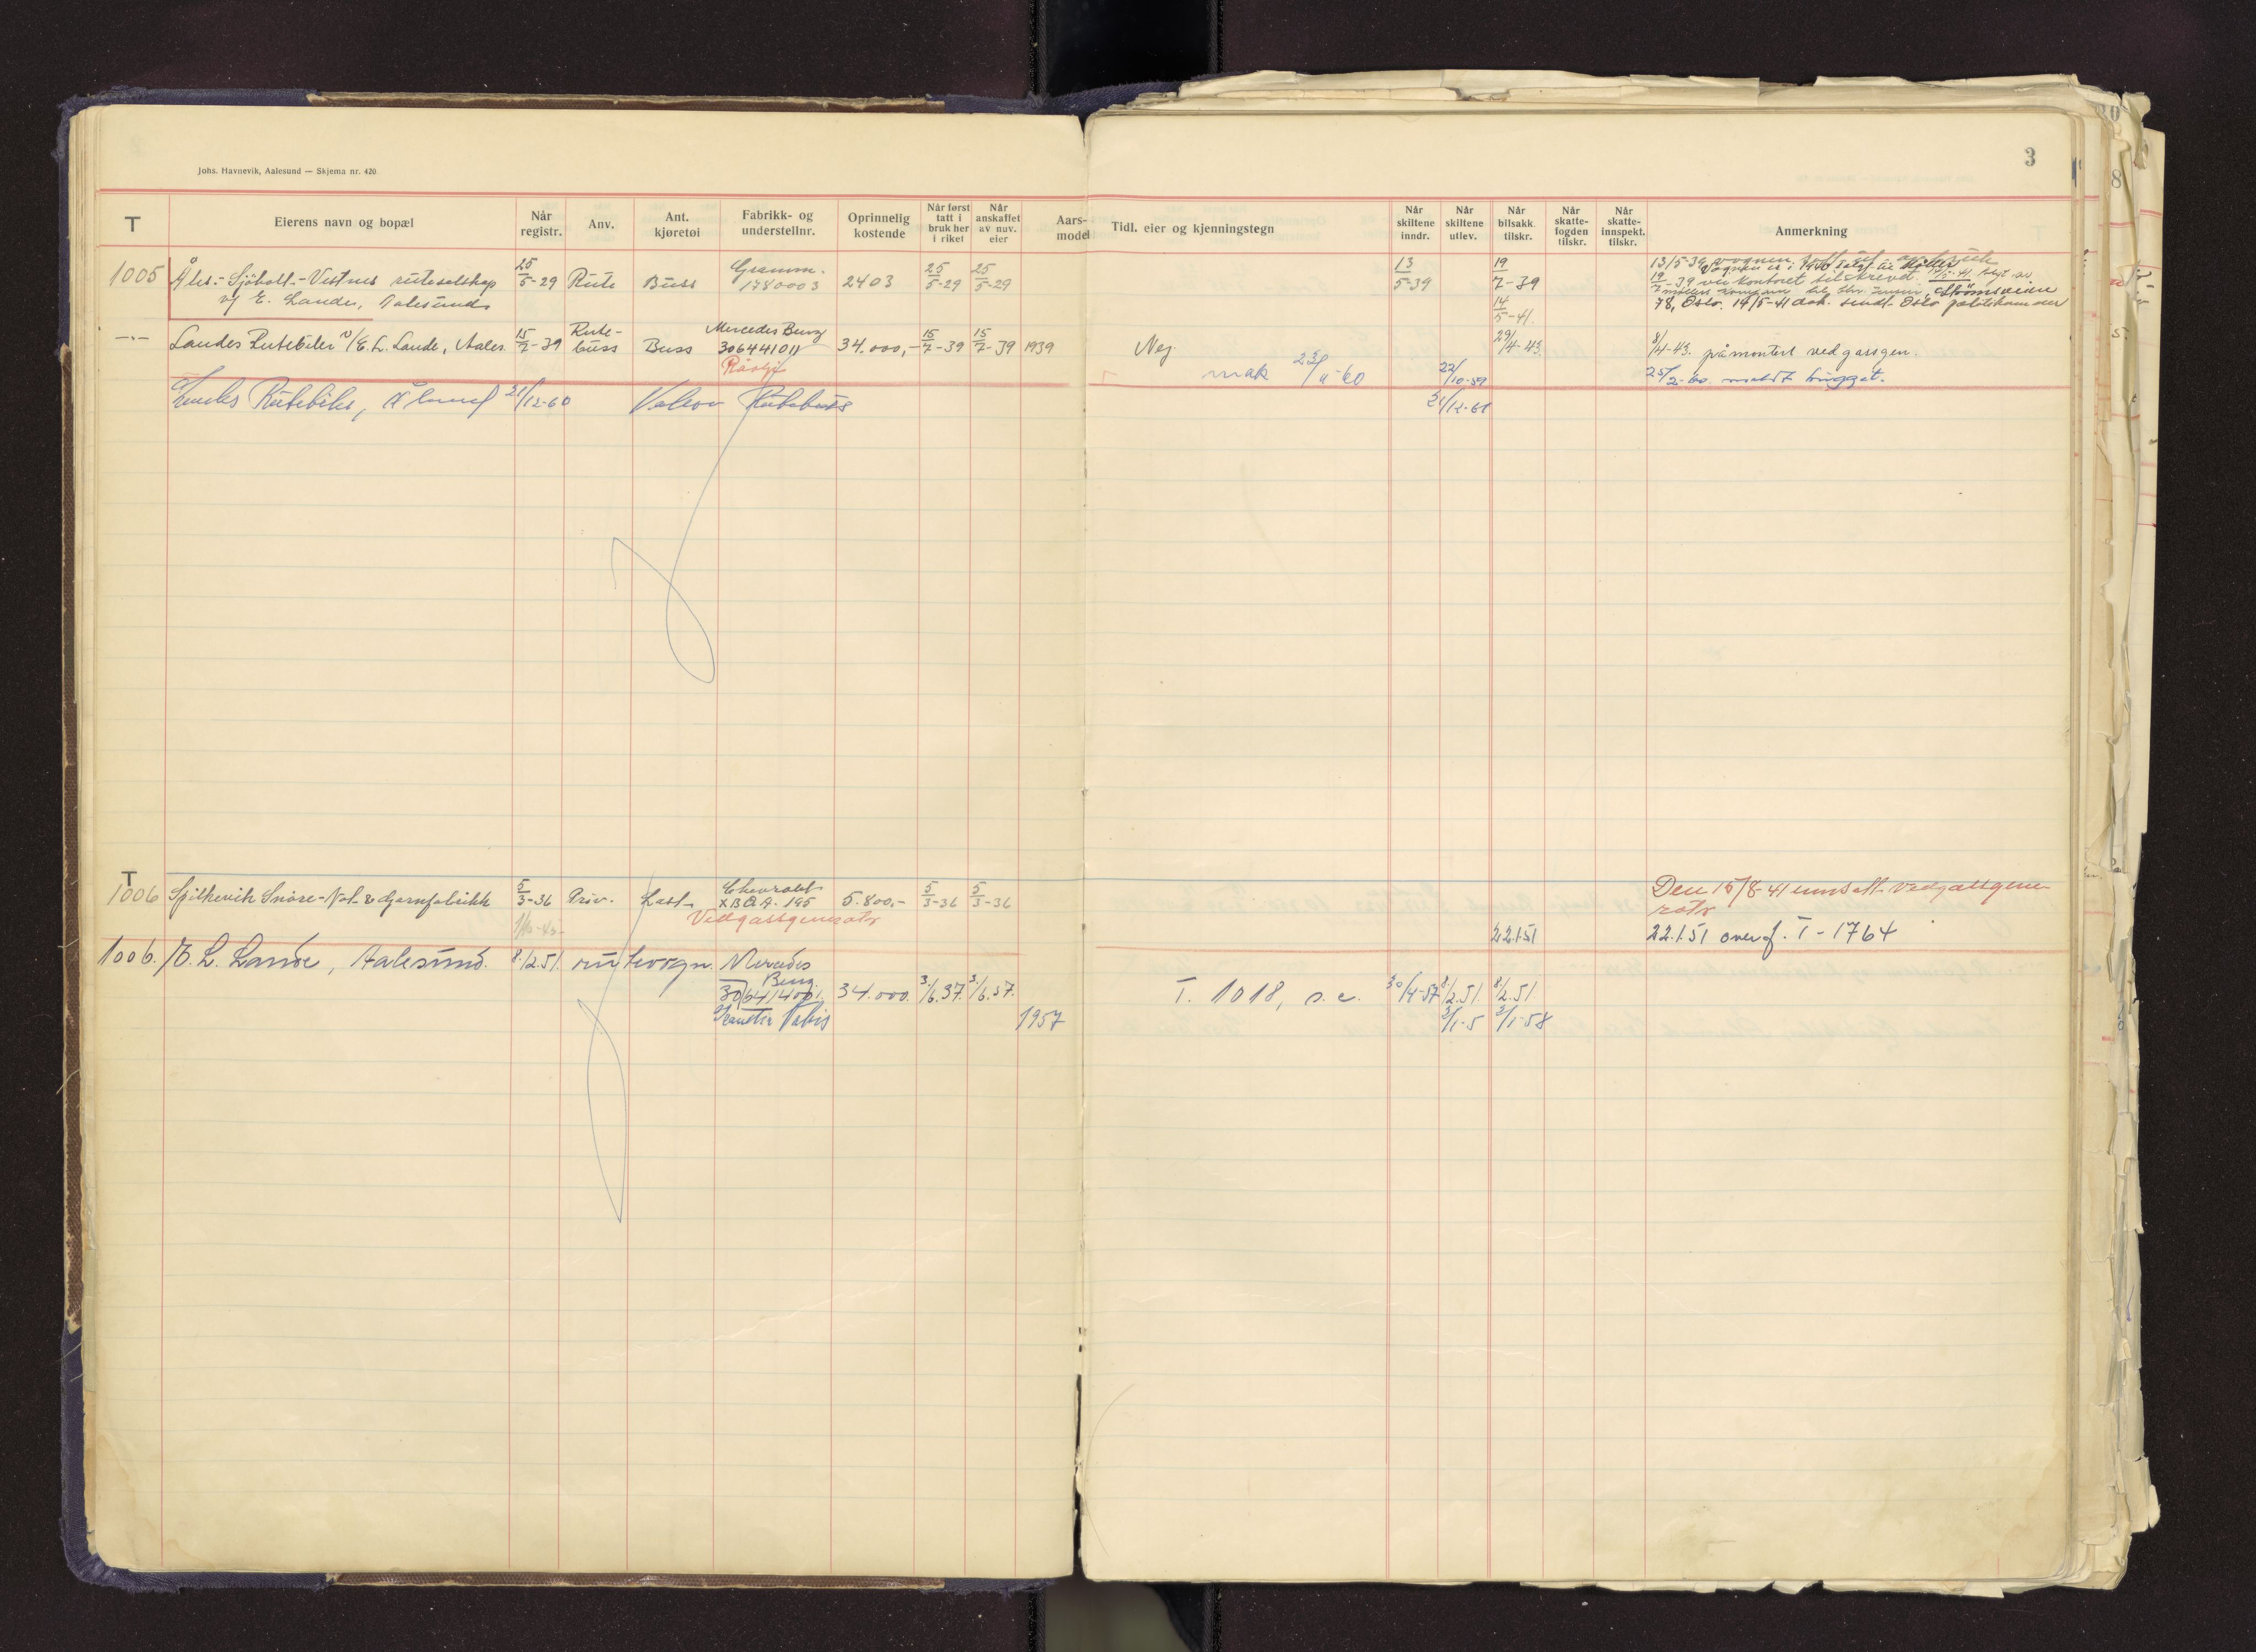 3
Johs. Havnevik, Aalesund — Skjema nr. 420
T
Eierens navn og bopæl
Når registr.
Anv.
Ant. kjøretøi
Fabrikk- og understellnr.
Oprinnelig kostende
Når først tatt i bruk her i riket
Når anskaffet av nuv. eier
Aars-model
Tidl. eier og kjenningstegn
Når skiltene inndr.
Når skiltene utlev.
Når bilsakk. tilskr.
Når skatte-fogden tilskr.
Når skatte-innspekt. tilskr.
Anmerkning
1005 Åles.-Sjöholt-Vestnes ruteselskap 25/5-29 Rute Buss 1780003 2403 25/5-29 25/5-29 13/5-39 19/7-39
v/ E. Lande, Aalesund 14/5-41
78, Oslo. 14/5-41 dok. sendt Oslo politikammer
—"— Landes Rutebiler v/E. L. Lande, Aales. 15/7-39 Rute-buss Buss Mercedes Benz 306441011 34.000,- 15/7-39 15/7-39 1939 Nej 29/4-43 8/4-43. påmontert vedgassgen.
Råolje
22/10-59
25/2-60 meldt hugget.
Landes Rutebiler, Ålesund 21/12-60 Volvo Rutebuss
T
1006 Spilkevik Snøre-Not & Garnfabrikk 5/3-36 Priv. Last Chevrolet XBQA.195 5.800,- 5/3-36 5/3-36
Vedgassgenerator
Den 15/8-41 innsatt vedgassgene-
rator
22.1.51 22.1.51 overf. T-1764
1006. E. L. Lande, Aalesund. 8/2.51. rutevogn. Mercedes
Benz.
34.000. 3/6.37. 3/6.37. T. 1018, s.e. 30/4-57 8/2.51. 8/2.51.
Vabis 1957 3/1-5 3/1-58